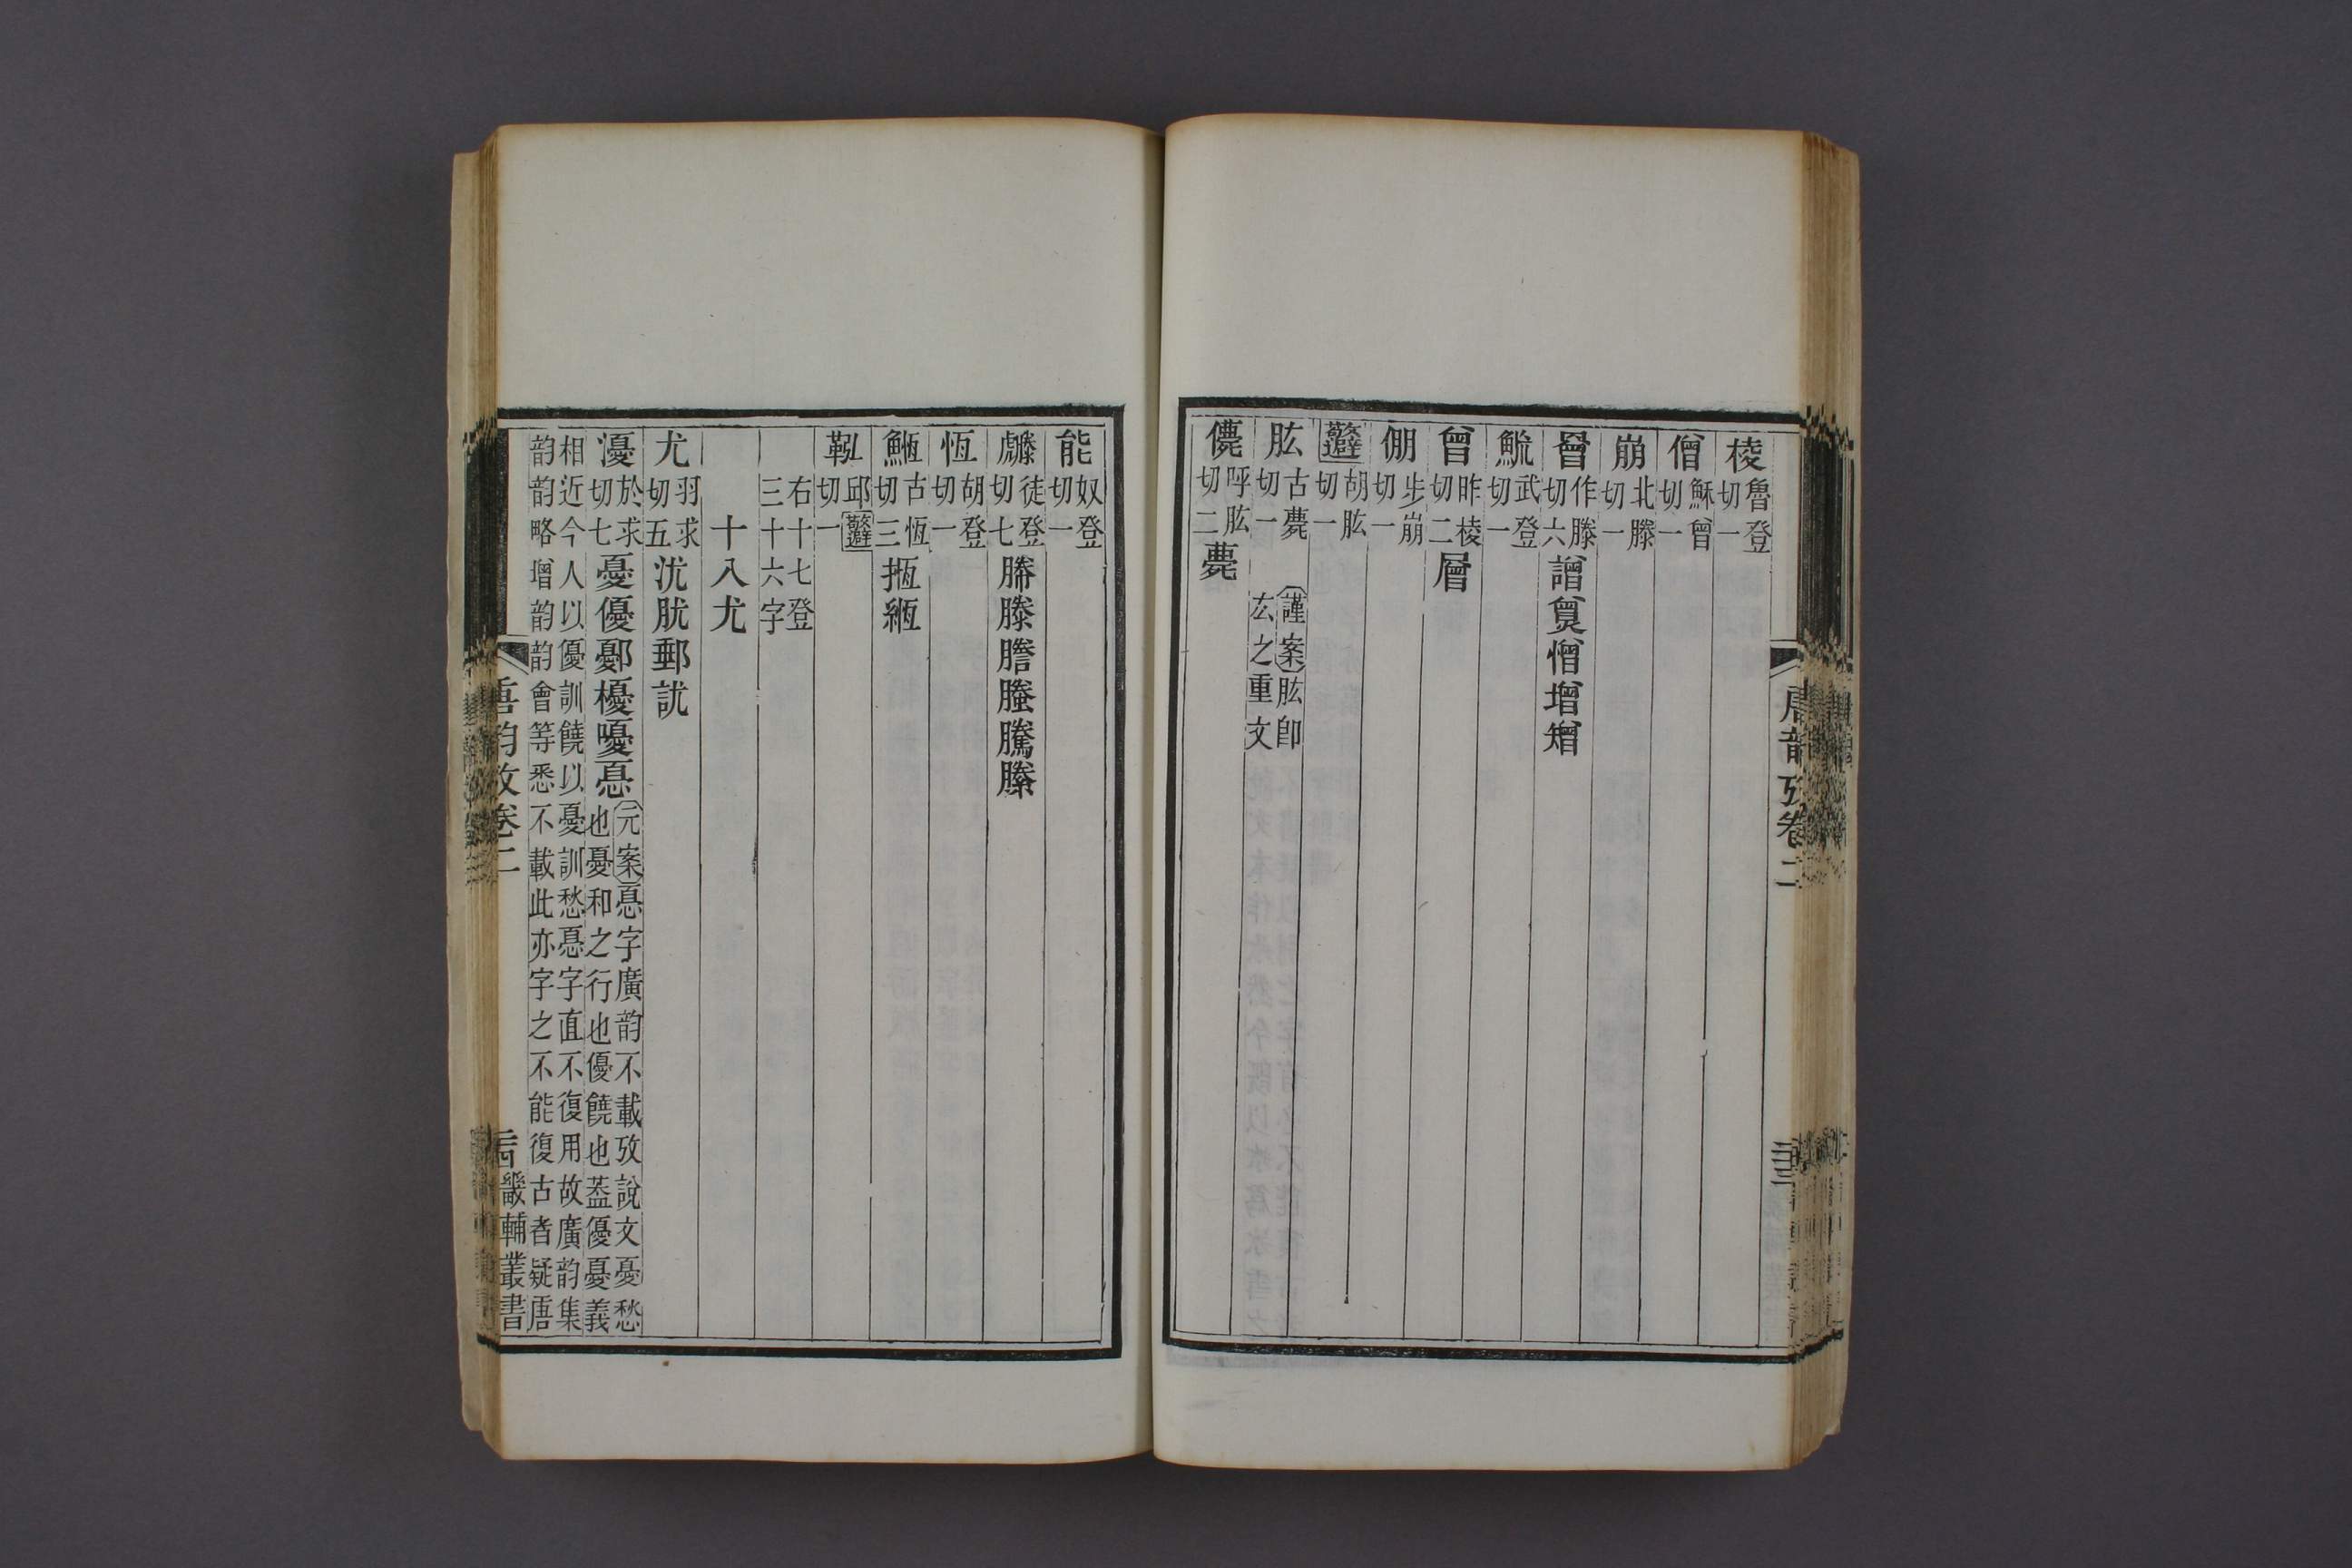 棱魯登切一
僧穌曾切一
崩北滕切一
曾作滕切六譄㚂憎增矰
䰃武登切一
曾昨棱切二層
倗步崩切一
避諱胡肱切一
肱古薨切一謹案肱卽厷之重文
儚呼肱切二薨
唐韵攷卷二
能奴登切一
徒登切七幐滕謄螣騰縢
恆胡登切一
䱭古恆切三搄緪
鞃邱避諱切一
右十七登三十六字
十八尤
尤羽求切五沋肬郵訧
瀀於求切七憂優鄾櫌嚘𢝊元案𢝊字廣韵不載攷說文𢝊愁也憂和之行也優饒也葢優憂義
相近今人以優訓饒以憂訓愁𢝊字直不復用故廣韵集韵韵略增韵韵會等悉不載此亦字之不能復古者疑唐
唐韵攷卷二
畿輔叢書